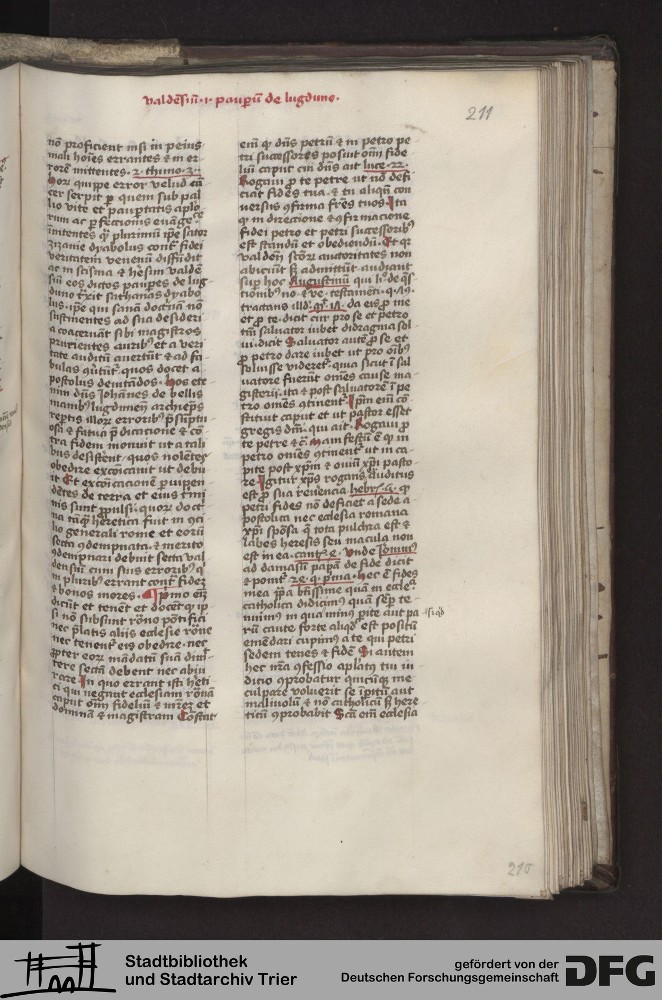 valdēsiū · ł · pauperū de lugduno ·
211
nō proficient nisi in peius
mali hoīes errantes & in er
rorē mittentes · 2 · thimo · 3 ·
Horū quippe error velud cā
cer serpit p quem sub pal
lio vite et paupertatis aplo
rum ac perfeccionis euāge
imitentes plurimū īpe sator
zizanie dyabolus cont fidei
veritatem venenū diffūdit
ac in scisma & hesim valdē
siū eos dictos paupes de lug
duno txit sathanas dyabo
lus · ipse qui sanā doctnā nō
sustinentes ad sua desideri
a coaceruāt sibi magistros
prurientes aurib et a veri
tate auditū auertūt & ad fa
bulas quos docet a
postolus deuitādos · Hos ete
nim dns Iohānes de bellis
manib lugdunen archieps
reptis illor errorib psūptu
osa & fatua pdicacione & cō
tra fidem monuit ut a tali
bus desistent · quos nolētes
obedire excōicauit ut debu
it Et excōicacionē puipen
dētes de terra et eius tmi
nis sunt xpulsi · quor doct
na tāq heretica fuit in 9ci
lio generali rome et eorū
secta 9dempnata · & merito
9dempnari debuit secta val
densiū cum suis errorib q
in plurib errant cont fidez
& bonos mores · Pmo em
dicūt et tenēt et docēt q ip
si nō subsunt rōno pōtifici
nec platis aliis ecclesie rōne
nec tenent eis obedire · nec
ppter eor mādatū suā dimit
tere sectā debent nec abiu
rare In quo errant isti heti
ci qui negant ecclesiam rōnā
caput om fideliū & mrez et
dominā & magistram Cōstat
em q dns petrū & in petro pe
tri successores posuit om fide
liū caput cū dns ait luce · 22 ·
Rogaui p te petre ut nō defi
ciat fides tua · & tu aliqn con
versus 9firma fres tuos · Ita
q in direccione & 9firmacione
fidei petro et petri successorib
est standū et obediendū · Et qr
valden scōr auctoritates non
abiciūt s admittūt · audiant
sup hoc Augustinū qui li de qs
tionib no · & ve · testamēti · q · 79 ·
tractans illd · 17 · da eis p me
et p te · dicit cur p se et petro
tm saluator iubet didragma sol
ui · dicit Saluator autē p se et
p petro dare iubet ut pro oīb
soluisse videret · quia sicut ī sal
uatore fuerūt omēs cause ma
gisterii · ita & post saluatorē ī pe
tro omēs 9tinent · Ipm em cō
stituit caput et ut pastor esset
gregis dm · qui ait · Rogaui p
te petre & c Manifestū e q in
petro omēs 9tinent ut in ca
pite post xpm & ouiū xpi pasto
re Igitur xps rogans auditus
est p sua reuencia hebr · 5 · q
petri fides nō deficiet a sede a
postolica nec eclesia romana
xpi spōsa q tota pulchra est &
labes heresis seu macula non
est in ea · cant · 4 · Unde Ieronim
ad damasū papā de fide dicit
& ponit · 24 · q · pma · Hec ē fides
mea ppa btissime quā in eccle
catholica didicim quā semp te
nuim in qua minus pite aut pa
rū caute forte aliqd est positū
emēdari cupim a te qui petri
sedem tenes & fidē Si autem
hec nra 9fessio aplatus tui iu
dicio 9probatur quicūq me
culpare voluerit se īpitū aut
maliuolū & nō catholicū s here
ticū 9probabit Scā em ecclesia
210
Stadtbibliothek
und Stadtarchiv Trier
gefördert von der
Deutschen Forschungsgemeinschaft
DFG